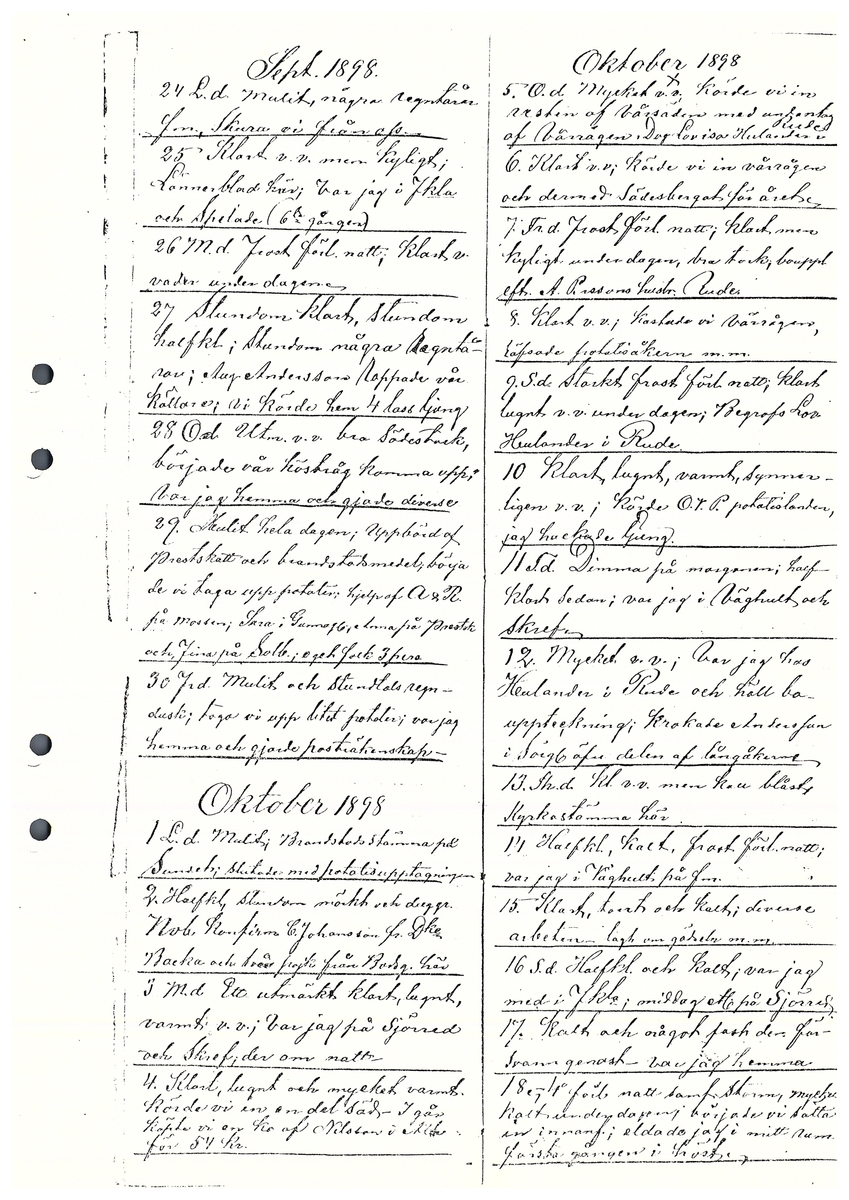 Sept. 1898.
24 L.d. Mulit, några regntårar
fm, Skura vi från oss.
25 Klart v.v. men kyligt;
Lönnerblad här; var jag i Jkla
och Spelade (6te gången)
26 M.d. Frost förl. natt; Klart v.
väder under dagen
27 Stundom klart, stundom
halfkl; stundom några Regntå-
rar; Aug Andersson Uppade vår
källare; vi körde hem 4 lass ljung
28 O.d Utm. v.v. bra Sädestork,
började vår höstråg komma upp;
Var jag hemma och gjorde diverse
29. Mulit hela dagen; Uppbörd af
Prestskatt och brandstodsmedel; börja
de vi taga upp potater; hjelp af A & R.
på mossen; Sara i Gunnas, Anna på Prestk
och Fina på Solb.;
30 Frd. Mulit och stundtals regn-
dusk; toga vi upp litet potater; var jag
hemma och gjorde posträkenskap
Oktober 1898
1 L.d. Mulit; Brandstodsstämma på
Sundet; slutade med potatisupptagningen
2. Halfkl, stundom mörkt och
Nvb. Konfirm C. Johansson fr.
Backa och från här
3 M.d Ett utmärkt klart, lugnt,
varmt v.v.; Var jag på Sjörred
och Skref; der om natt
4. Klart, lugnt och mycket varmt.
Körde vi in en del säd. I går
köpte vi en Ko af Nilsson i
för 54 Kr.
Oktober 1898
5. O.d Mycket v.v. Körde vi in
resten af vårsäden med undantag
af Vårrågen. Dog Lovisa Hulander i Rude
6. Klart v.v; körde vi in vårrågen
och dermed Södesbergat för året
7. Fr.d. Frost förl. natt; klart men
kyligt under dagen, bra tork; bouppt
eft. A. Perssons hustr. Rude.
8. Klart v.v.; kastade vi Vårrågen,
räfsade potatisåkern m.m.
9. S.d. Starkt frost förl natt; klart
lugnt v.v. under dagen; Begrofs Lov
Heulander i Rude
10 Klart, lugnt, varmt, synner-
ligen v.v.; körde O.P. potatislanden,
jag hackade ljung.
11 T.d. Dimma på morgonen; half-
klart sedan; var jag i Våghult och
Skref
12. Mycket v.v.; Var jag hos
Heulander i Rude och höll bo-
uppteckning; krokade Andersson
i öfre delen af långåkern
13. Th.d. Kl v.v. men kall blåst,
Kyrkostämma här
14 Halfkl, kalt, frost förl. natt;
var jag i Våghult på fm.
15. Klart, tort och kalt; diverse
arbeten - lagt om gödseln m.m.
16 S.d. Halfkl. och kalt; var jag
med i Jkla; middag på Sjörred
17. Kalt och något fast der för-
svann genast - var jag hemma
18 förl. natt samt Storm, mycket
kalt under dagen; började vi sätta
in innanf.; eldade jag i mitt rum
första gången i höst.